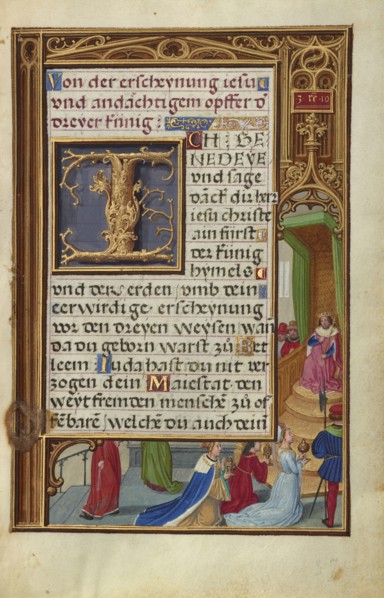 Von der erscheynung iesu
vnd andächtigem opffer d̄
dreyer künig :
3 · re · 10
ICH GE
NEDEYE
vnd sage
dāck dir herr
iesu christe
ain fürst
der künig
hymels
vnd der erden vmb dein
eerwirdige erscheynung
vor den dreyen weysen wan̄
da du geborn warst zů Bet
leem Nu da hast du nit ver
zogen dein Maiestat den
weyt fremden menschē zů of
fēbarē welchē du auch dein